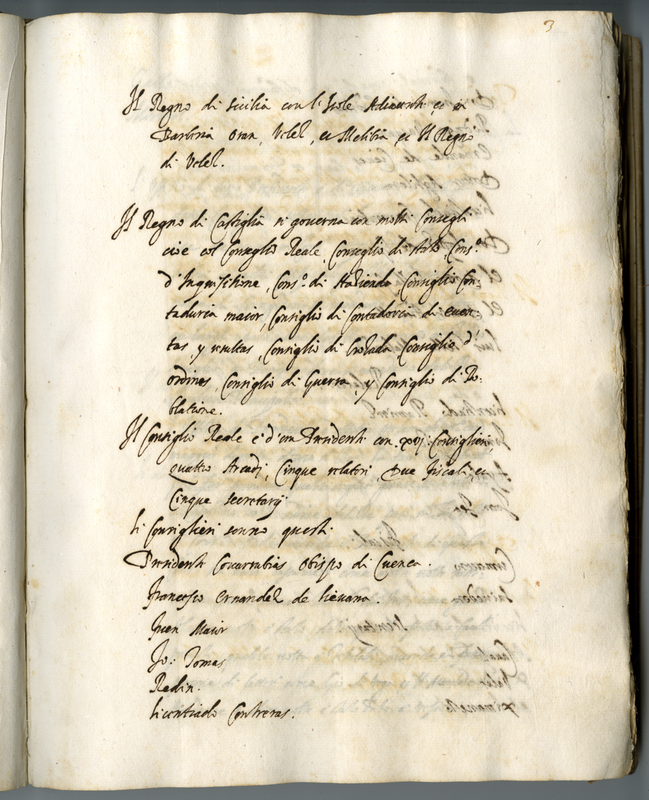 3
Il Regno di Sicilia con l'Isole Adiacenti et in
Barberia Oran, Velez, et Melilia et Il Regno
di Velez.
Il Regno di Castiglia si governa con molti Consegli
cioè col Conseglio Reale, Conseglio di stato, Cons.º
d'Inquisitione, Cons.º di Hazienda, Consiglio Con-
taduria maior, Consiglio di Contadoria di cuen-
tas y resultas, Consiglio di Crozada, Consiglio d'
ordines, Consiglio di Guerra y Consiglio di Po-
blatione.
Il Consiglio Reale è d'un Presidente con xvj. Consiglieri,
quattro Arcadi, Cinque relatori Due fiscali et
Cinque secretarij
li Consiglieri sonno questi
Presidente Covarrubias Obispo di Cuenca.
Francesco Ernandez de lievana.
Juan Maior
Jo: Tomas
Redin.
licentiado Contreras.